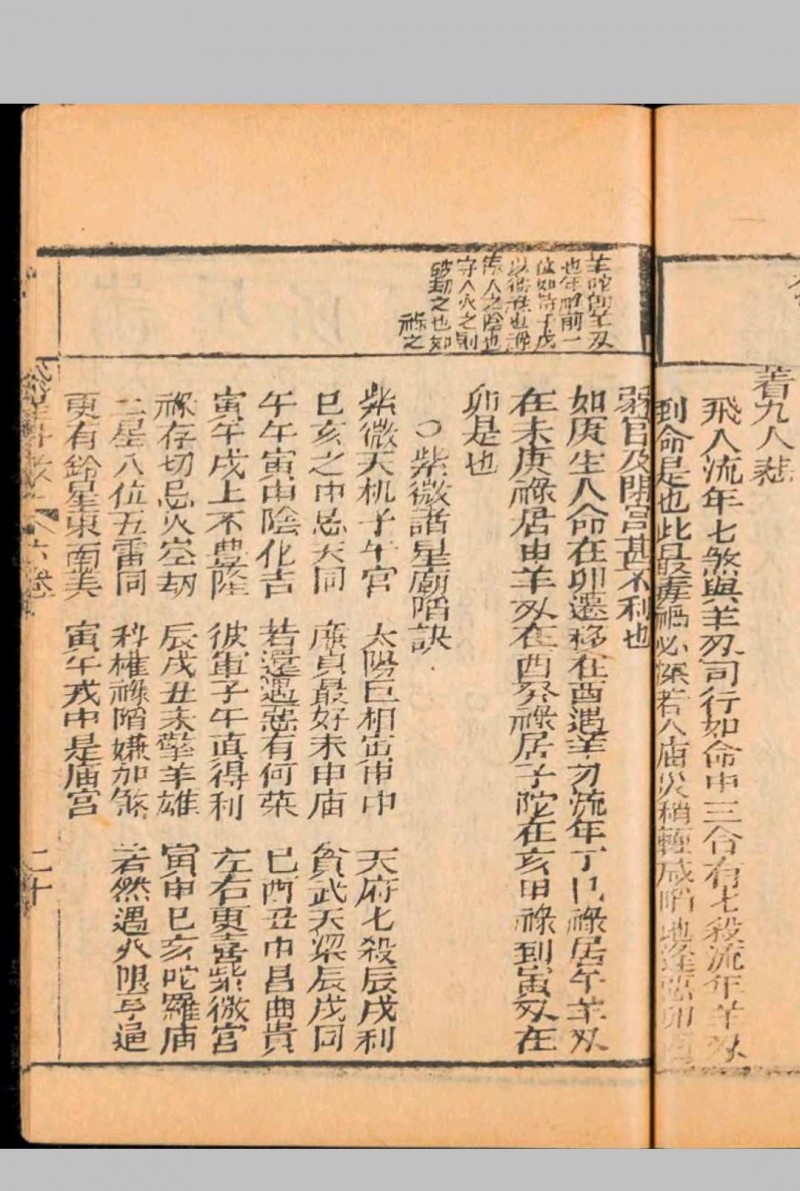 着九人悲
飛入流年七煞與羊刃司行如命中三合有七殺流年羊刃
到命是也此最毒禍必深若入庙災稍輕咸陷地逢惡卯
羊陀即羊刃
也年祿前一
位如
守人火之則
之也如
祿之
弱官及閉宮甚不利也
如庚生人命在卯遷移在酉遇羊刃流年丁巳祿居午羊刃
在未庚祿居申羊刃在酉癸祿居子陀在亥甲祿到寅刃在
卯是也
○紫微諸星廟陷訣
紫微天机子午宮 太陽巨相寅申中 天府七殺辰戌利
巳亥之中忌天同 廉貞最好未申庙 貧武天梁辰戌同
午午寅申陰化吉 若還遇惡有何萊 巳酉丑中昌曲貴
寅午戌上不豊隆 彼軍子午真得利 左右更喜紫微宮
祿存切忌火空劫 辰戌丑未擎羊雄 寅申巳亥陀羅庙
二星八位五雷同 科權祿陷嫌加煞 若然遇火限亨通
更有鈴星東南美 寅午戎中是庙宮
二十